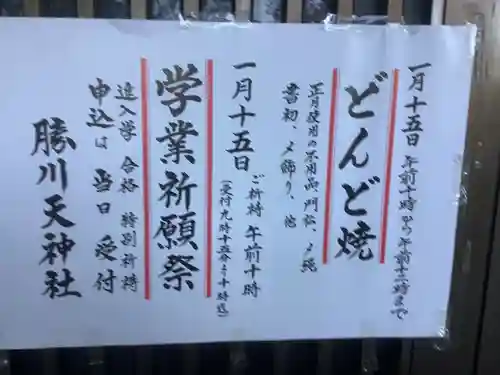 一月十五日 午前十時から午前十二時まで
どんど焼
正月使用の不用品、門松、〆縄
書初、〆飾り、他
一月十五日 ご祈祷 午前十時
(受付九時十五分より十時迄)
学業祈願祭
進入学 合格 特別祈祷
申込は 当日 受付
勝川天神社